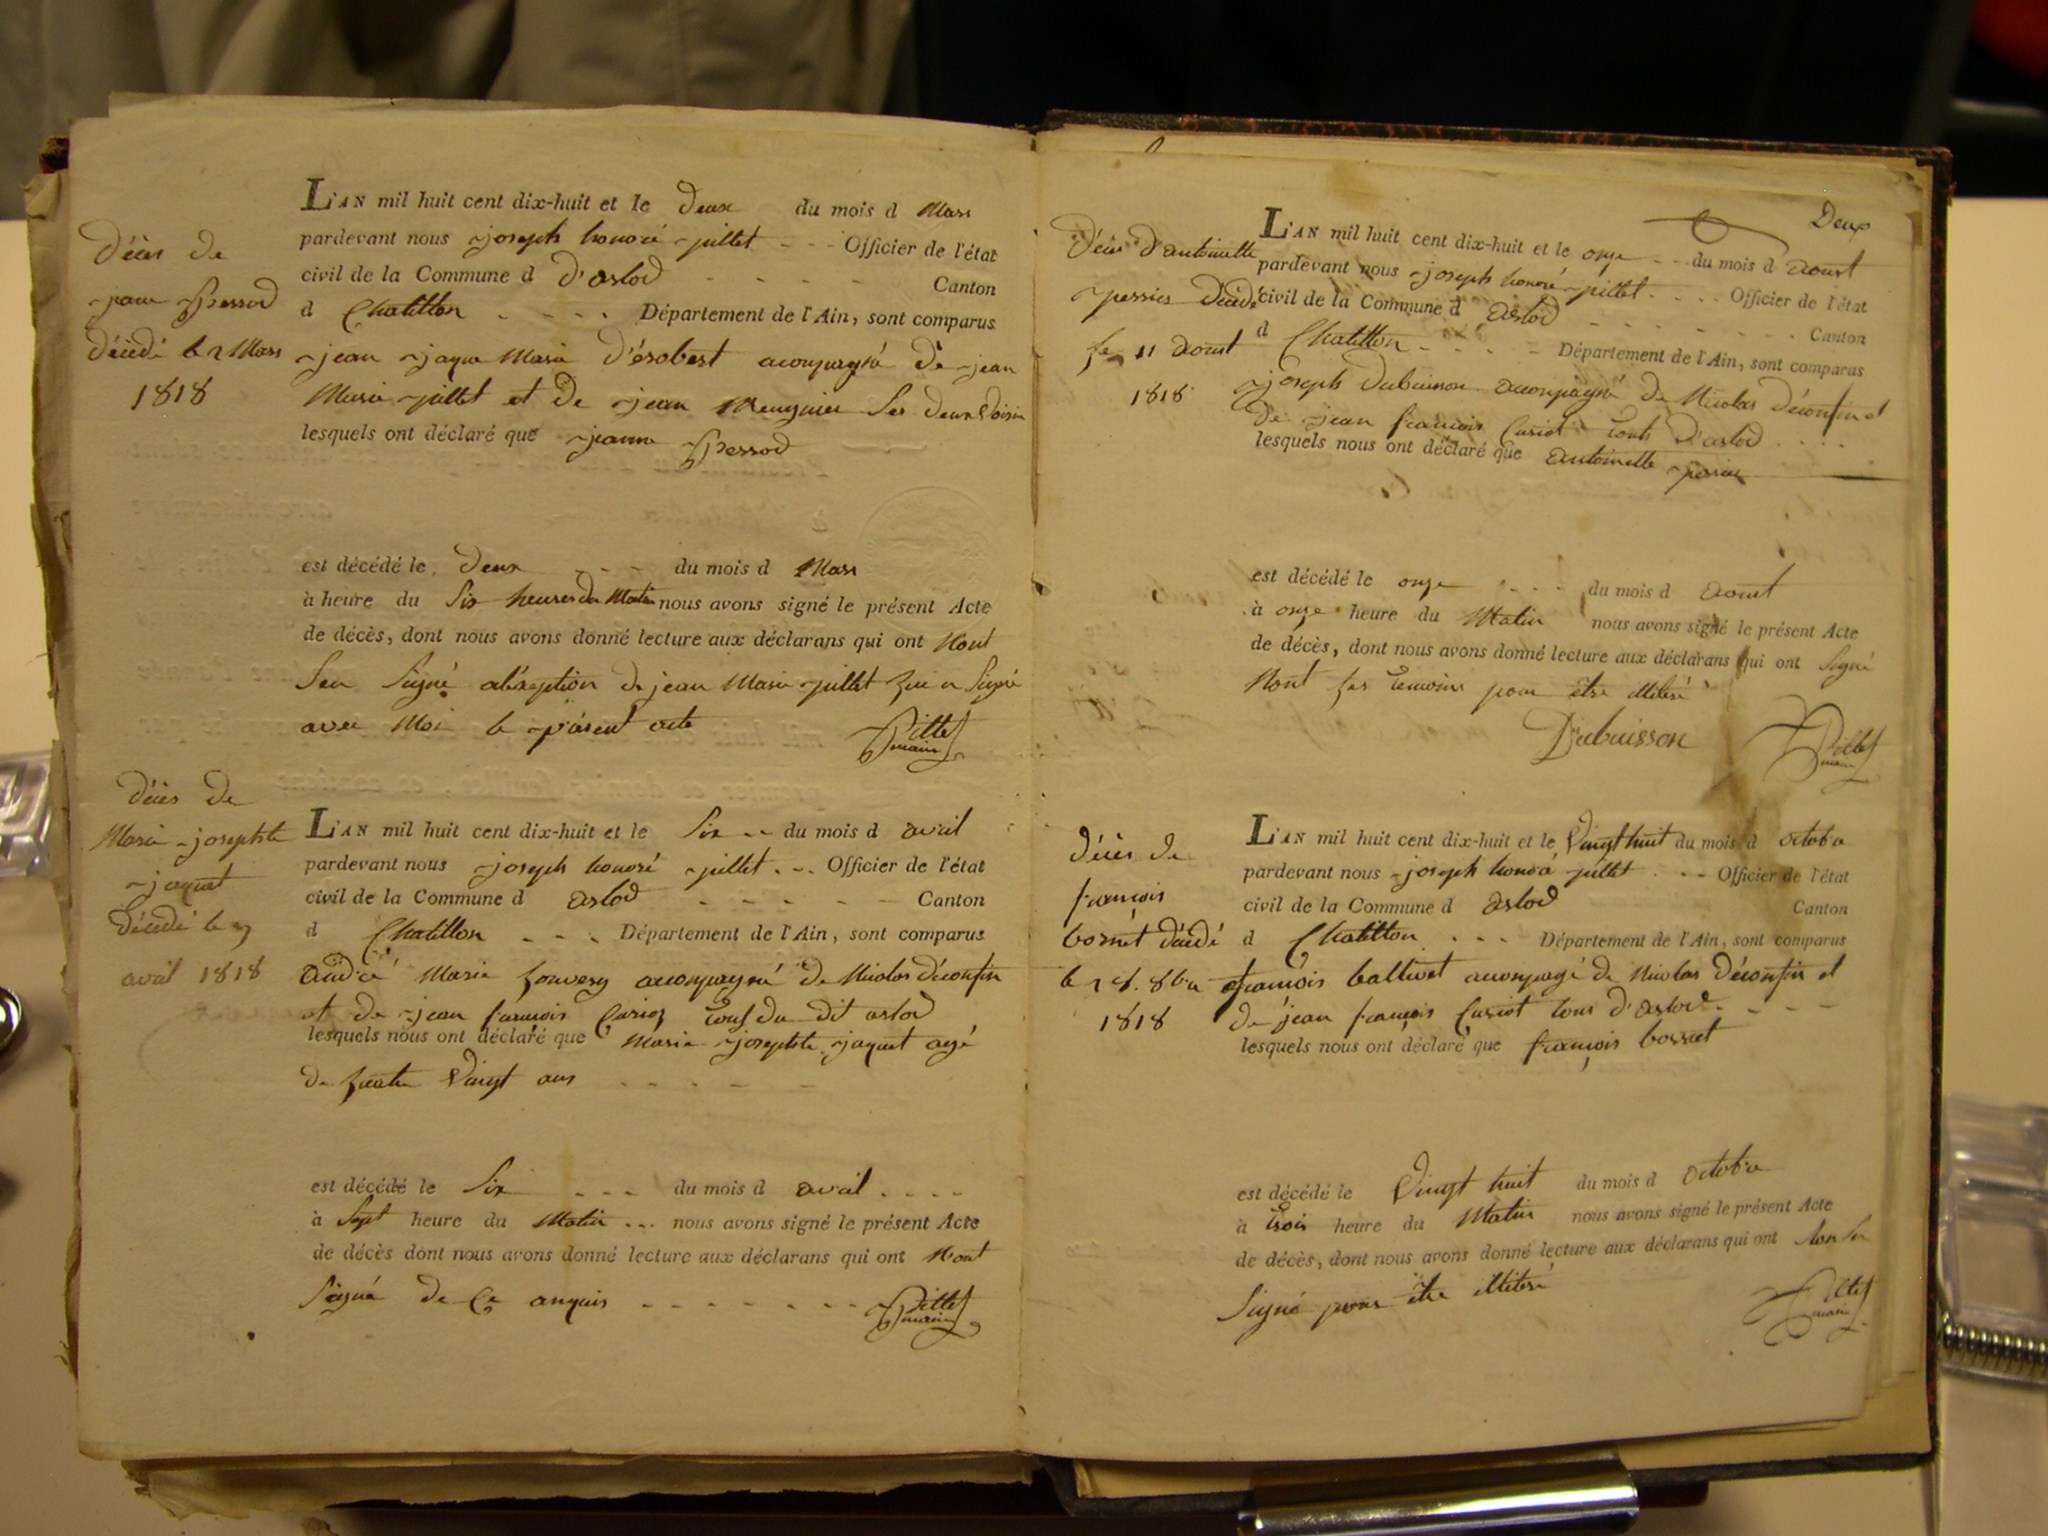 décès de
jeane Pessod
décédé le 2 Mars
1818
L'AN mil huit cent dix-huit et le deux du mois d Mars
pardevant nous joseph honoré pillet - - - Officier de l'état
civil de la Commune d d'arlod - - - - - Canton
d Chatillon - - - - Département de l'Ain, sont comparus
jean jaque Marie d'érobert acompagné de jean
Marie pillet et de jean Meugnier Ses deux voisin
lesquels ont déclaré que jeanne Pessod
est décédé le deux - - - du mois d Mars
à heure du Six heures du Matin nous avons signé le présent Acte
de décès, dont nous avons donné lecture aux déclarans qui ont Nont
Seu Signé a l'éxeption de jean Marie pillet qui a Signé
avec Moi le présent acte
Pillet
maire
décès de
Marie josephte
jaquet
Décédé le
avril 1818
L'AN mil huit cent dix-huit et le Six - - du mois d avril
pardevant nous joseph honoré pillet - - Officier de l'état
civil de la Commune d arlod - - - - - Canton
d Chatillon - - - Département de l'Ain, sont comparus
Marie acompagné de Nicolas déconfin
et de jean françois Curioz tous du dit arlod
lesquels nous ont déclaré que Marie josephte jaquet agé
de quatre Vingt ans - - - - - -
est décédé le Six - - - du mois d avril - - - -
à Sept heure du Matin - - - nous avons signé le présent Acte
de décès dont nous avons donné lecture aux déclarans qui ont Nont
Signé de Ce anquis - - - - - - - -
Pillet
maire
Deux
Décès d'antoinette
perrier Décédé
le 11 aoust
1818
L'AN mil huit cent dix-huit et le onze - - du mois d aoust
pardevant nous joseph honoré pillet - - - - Officier de l'état
civil de la Commune d arlod - - - - - - Canton
d Chatillon - - - - - Département de l'Ain, sont comparus
joseph Dubuisson acompagné de Nicolas déconfin et
de jean françois Curiot touts d'arlod - - - -
lesquels nous ont déclaré que antoinette perrier
est décédé le onze - - - - du mois d aoust
à onze heure du Matin nous avons signé le présent Acte
de décès, dont nous avons donné lecture aux déclarans qui ont Signé
Nont ses temoins pour être illiteré
Dubuisson
Pillet
maire
décès de
françois
bornet décédé
le 28. 8bre
1818
L'AN mil huit cent dix-huit et le Vingt huit du mois d octobre
pardevant nous joseph honoré pillet - - - Officier de l'état
civil de la Commune d arlod Canton
d Chatillon - - - Département de l'Ain, sont comparus
françois ballivet acompagé de Nicolas déconfin et
de jean françois Curiot tous d'arlod - - - -
lesquels nous ont déclaré que françois
est décédé le Vingt huit du mois d octobre
à trois heure du Matin nous avons signé le présent Acte
de décès, dont nous avons donné lecture aux déclarans qui ont
Signé pour être illiteré
Pillet
maire